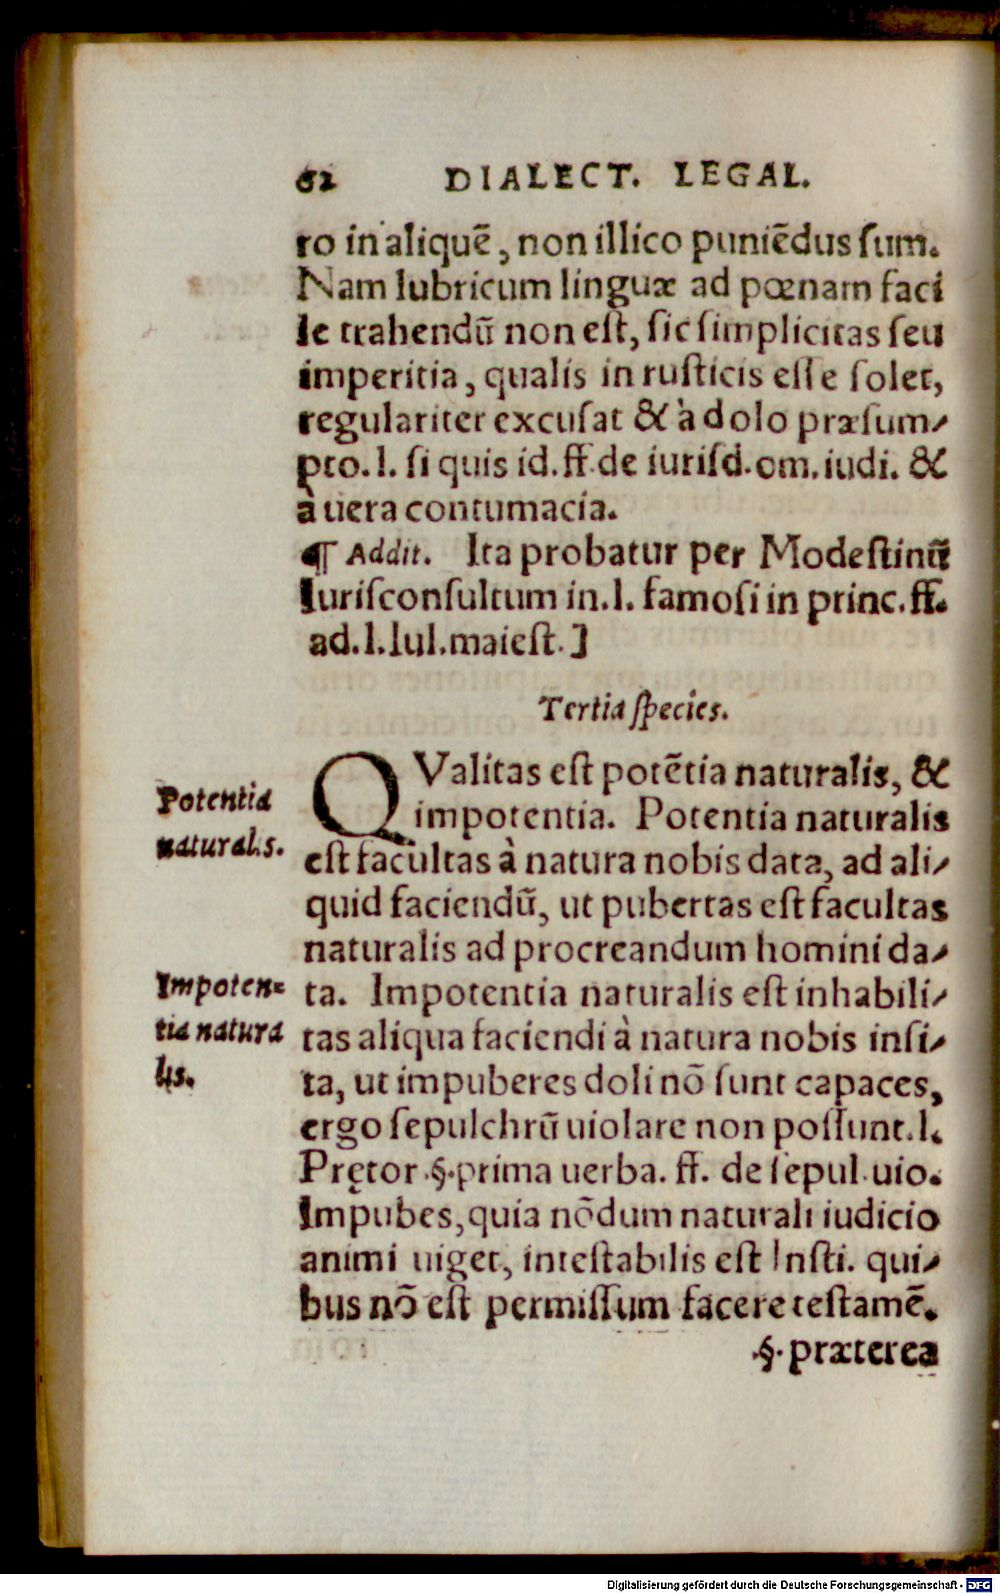 62 DIALECT. LEGAL.
ro in aliquē, non illico puniēdus ſum.
Nam lubricum linguæ ad pœnam faci
le trahendū non eſt, ſic ſimplicitas ſeu
imperitia, qualis in ruſticis eſſe ſolet,
regulariter excuſat & à dolo præſum-
pto. l. ſi quis id. ff. de iuriſd. om. iudi. &
à uera contumacia.
¶ Addit. Ita probatur per Modeſtinū
Iuriſconſultum in. l. famoſi in princ. ff.
ad. l. Iul. maieſt. ]
Tertia ſpecies.
QValitas eſt potētia naturalis, &
impotentia. Potentia naturalis
eſt facultas à natura nobis data, ad ali-
quid faciendū, ut pubertas eſt facultas
naturalis ad procreandum homini da-
ta. Impotentia naturalis eſt inhabili-
tas aliqua faciendi à natura nobis inſi-
ta, ut impuberes doli nō ſunt capaces,
ergo ſepulchrū uiolare non poſſunt. l.
Prętor .§. prima uerba. ff. de ſepul. uio.
Impubes, quia nōdum naturali iudicio
animi uiget, inteſtabilis eſt Inſti. qui-
bus nō eſt permiſſum facere teſtamē.
.§. præterea
Potentia
naturalis.
Impoten=
tia natura
lis.
Digitalisierung gefördert durch die Deutsche Forschungsgemeinschaft - DFG